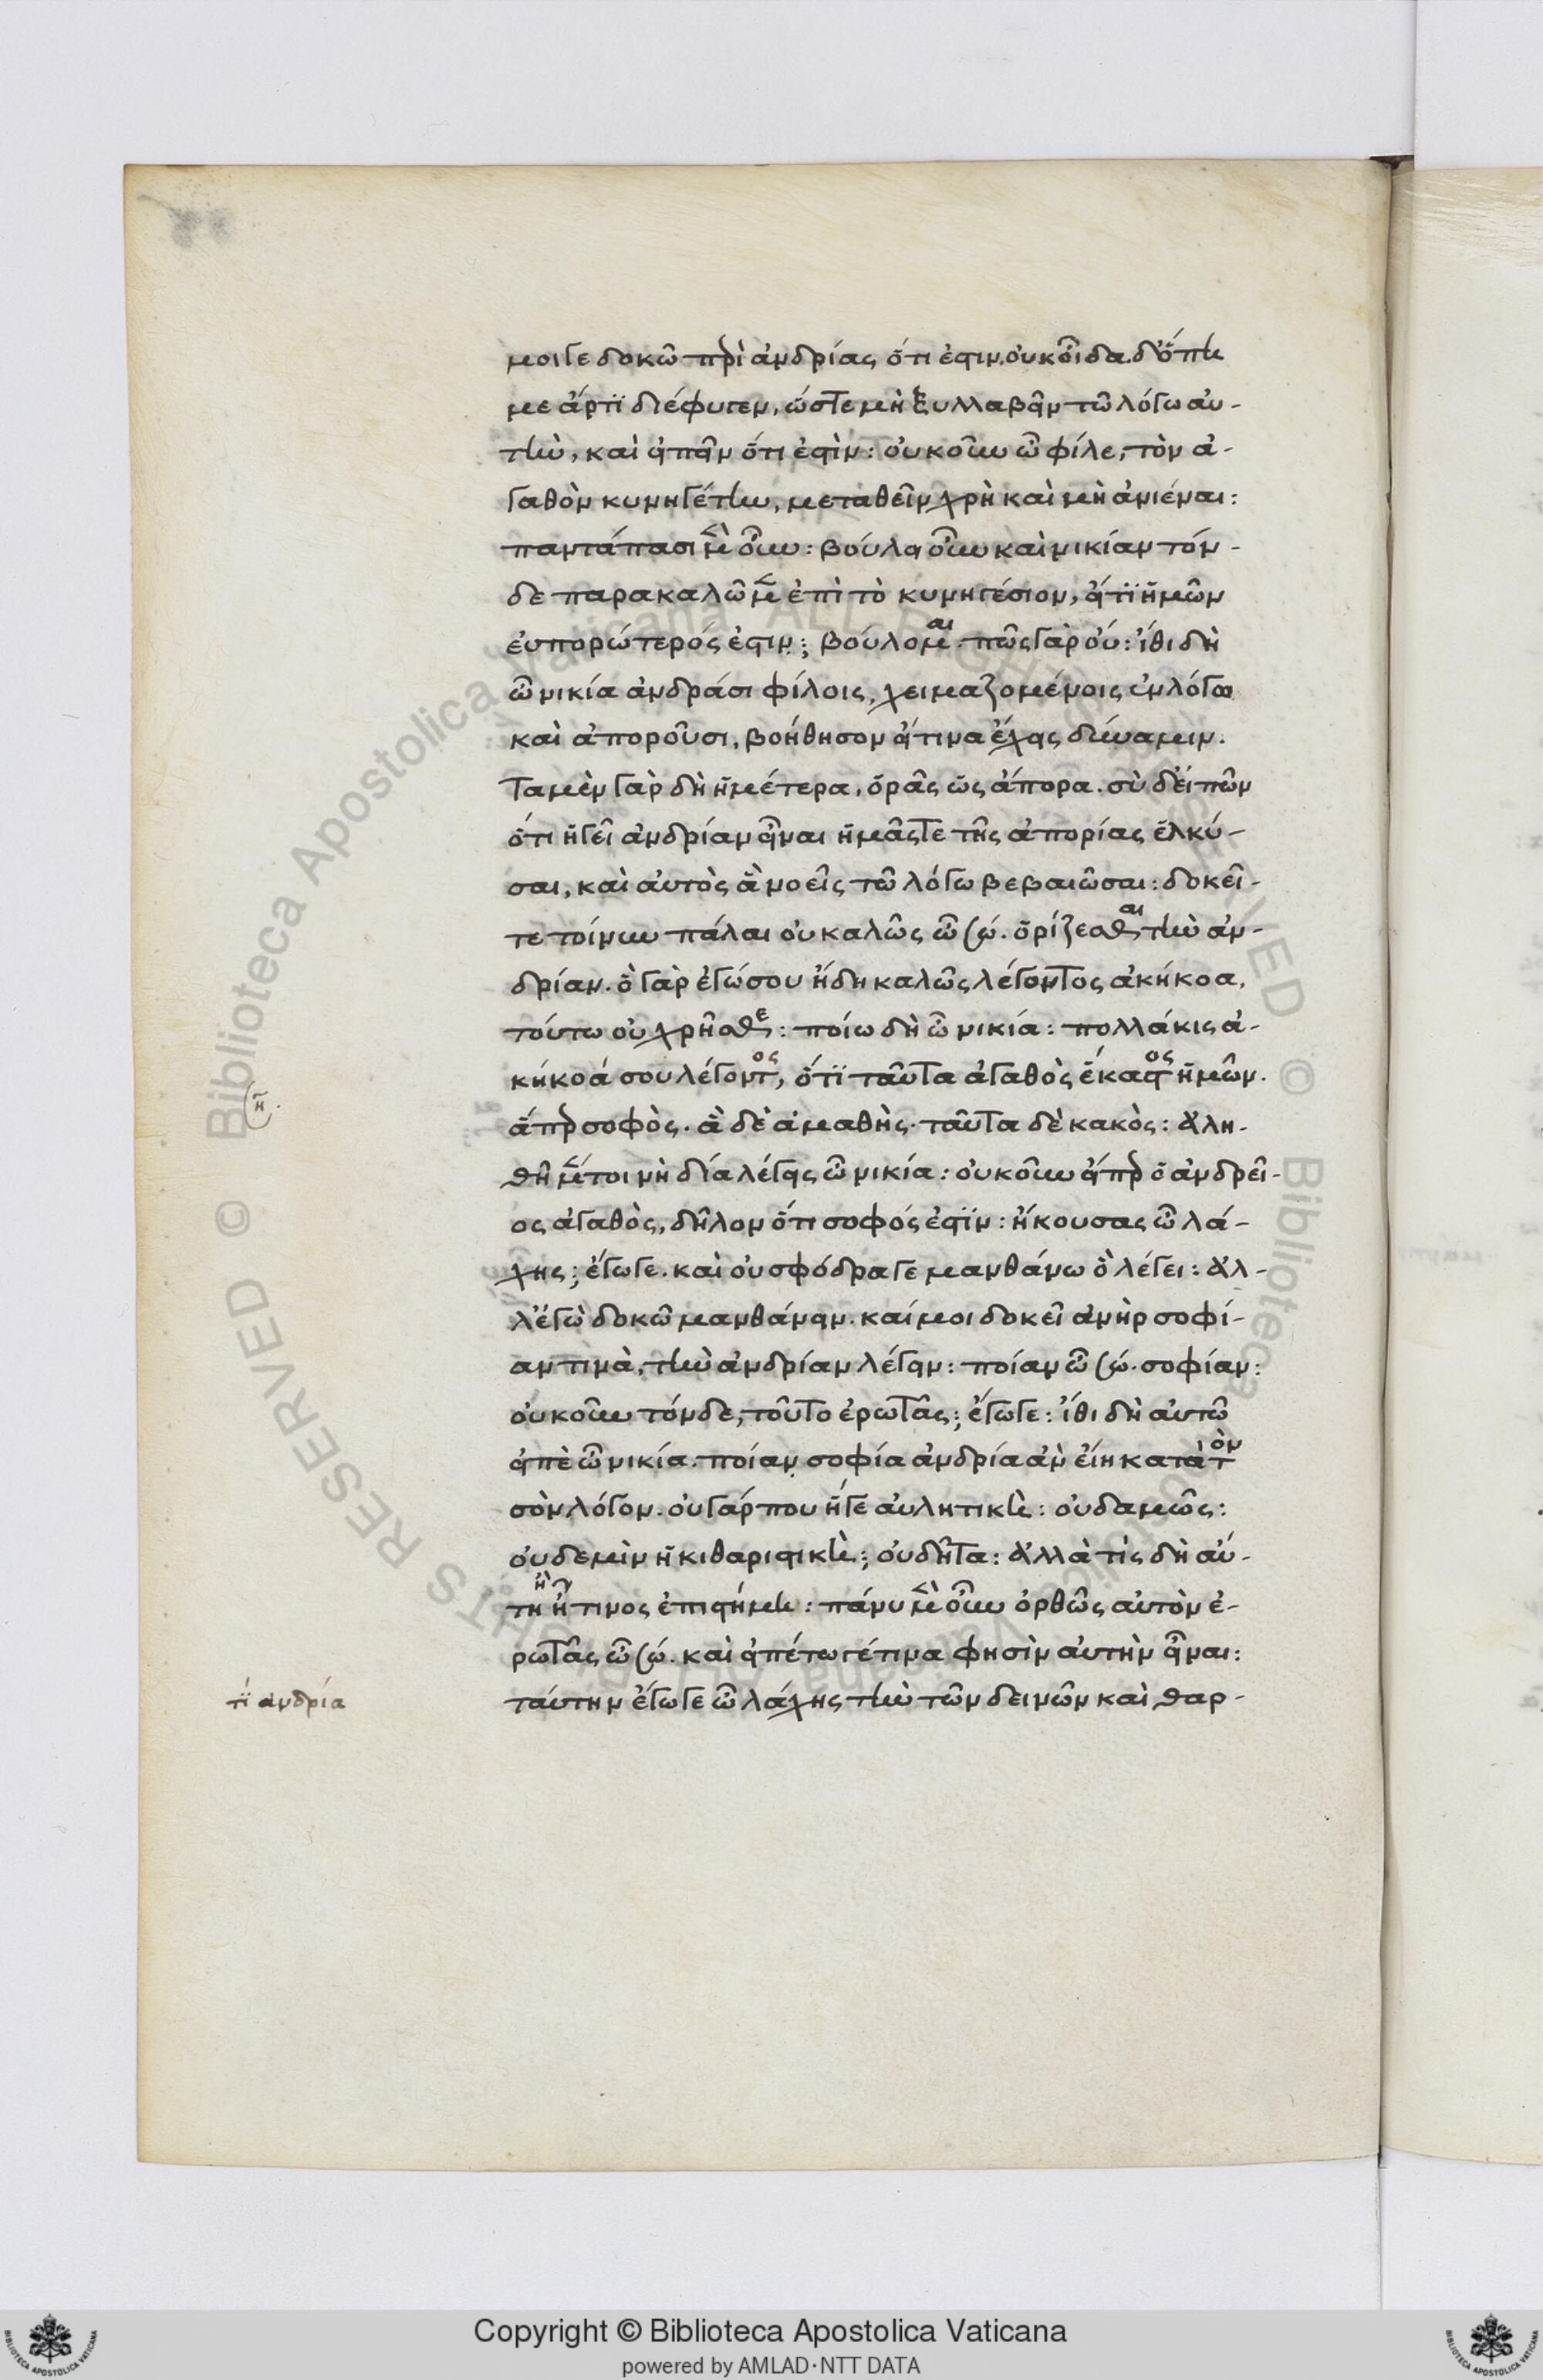 μοιγε δοκῶ περὶ ἀνδρίας ὅτι ἐστιν. οὐκ οἶδα δ' ὅπη
με ἄρτι διέφυγεν, ὥστε μὴ ξυλλαβεῖν τῶ λόγω αὐ-
τὴν, καὶ εἰπεῖν ὅτι ἐστὶν: οὐκοῦν ὦ φίλε, τὸν ἀ-
γαθὸν κυνηγέτην, μεταθεῖν χρὴ καὶ μὴ ἀνιέναι:
παντάπασι μὲν οὖν: βούλει οὖν καὶ νικίαν τόν-
δε παρακαλῶμεν ἐπὶ τὸ κυνηγέσιον, εἴ τι ἡμῶν
εὐπορώτερός ἐστιν; βούλομαι. πῶς γὰρ οὔ: ἴθι δὴ
ὦ νικία ἀνδράσι φίλοις, χειμαζομένοις ἐν λόγω
καὶ ἀποροῦσι, βοήθησον εἴ τινα ἔχεις δύναμιν.
τα μὲν γὰρ δὴ ἡμέτερα, ὁρᾶς ὡς ἄπορα. σὺ δ' εἰπὼν
ὅτι ἡγεῖ ἀνδρίαν εἶναι ἡμᾶς τε τῆς ἀπορίας ἕλκύ-
σαι, καὶ αὐτὸς ἃ νοεῖς τῶ λόγω βεβαιῶσαι: δοκεῖ-
τε τοίνυν πάλαι οὐ καλῶς ὦ σώ. ὁρίζεσθαι τὴν ἀν-
δρίαν. ὃ γὰρ ἐγώ σου ἤδη καλῶς λέγοντος ἀκήκοα,
τούτω οὐ χρῆσθε: ποίω δὴ ὦ νικία: πολλάκις ἀ-
κήκοά σου λέγοντος, ὅτι ταῦτα ἀγαθὸς ἕκαστος ἡμῶν.
ἅπερ σοφὸς. ἃ δὲ ἀμαθὴς. ταῦτα δὲ κακὸς: ἀλη-
θῆ μέντοι νὴ δία λέγεις ὦ νικία: οὐκοῦν εἴπερ ὁ ἀνδρεῖ-
ος ἀγαθὸς, δῆλον ὅτι σοφός ἐστιν: ἤκουσας ὦ λά-
χης; ἔγωγε. καὶ οὐ σφόδρα γε μανθάνω ὃ λέγει: ἀλ-
λ' ἐγὼ δοκῶ μανθάνειν. καί μοι δοκεῖ ἀνὴρ σοφί-
αν τινὰ, τὴν ἀνδρίαν λέγειν: ποίαν ὦ σώ. σοφίαν:
οὐκοῦν τόνδε, τοῦτο ἐρωτᾶς; ἔγωγε: ἴθι δὴ αὐτῶ
εἰπὲ ὦ νικία. ποίαν σοφία ἀνδρία ἀν εἴη κατὰ τὸν
σὸν λόγον. οὐ γάρ που ἥγε αὐλητική: οὐδαμῶς:
οὐδε μὴν ἡ κιθαριστική; οὐδῆτα: ἀλλὰ τίς δὴ αὕ-
τη ἢ τίνος ἐπιστήμη: πάνυ μὲν οὖν ὀρθῶς αὐτὸν ἐ-
ρωτᾶς ὦ σώ. καὶ εἰπέτω γέ τινα φησὶν αὐτὴν εἶναι:
ταύτην ἔγωγε ὦ λάχης τὴν τῶν δεινῶν καὶ θαρ-
τί ανδρία
Copyright © Biblioteca Apostolica Vaticana
powered by AMLAD·NTT DATA